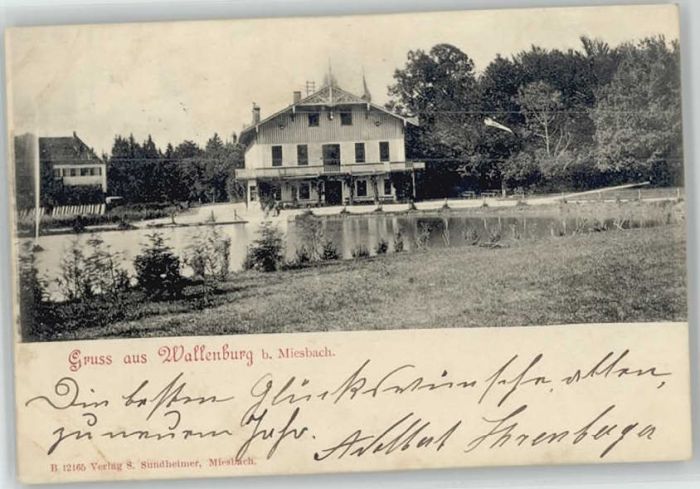 Gruss aus Wallenburg b. Miesbach.
Die besten Glückswünsche allen,
zu neuem Jahr.
Adalbert Ehrenberger
B 12165 Verlag S. Sundheimer, Miesbach.